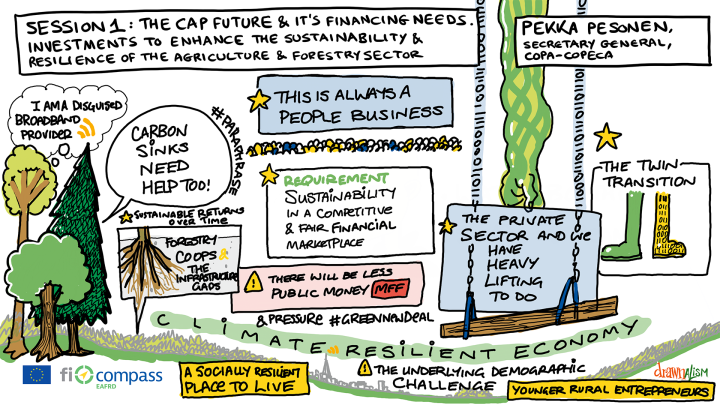 SESSION 1: THE CAP FUTURE & IT'S FINANCING NEEDS.
INVESTMENTS TO ENHANCE THE SUSTAINABILITY &
RESILIENCE OF THE AGRICULTURE & FORESTRY SECTOR
PEKKA PESONEN,
SECRETARY GENERAL,
COPA-COPECA
I AM A DISGUISED
BROADBAND
PROVIDER
CARBON
SINKS
NEED
HELP TOO!
#PARAPHRASE
THIS IS ALWAYS A
PEOPLE BUSINESS
REQUIREMENT
SUSTAINABILITY
IN A COMPETITIVE
& FAIR FINANCIAL
MARKETPLACE
THE TWIN
TRANSITION
SUSTAINABLE RETURNS
OVER TIME
FORESTRY
COOPS &
THE
INFRASTRUCTURE
GAPS
THERE WILL BE LESS
PUBLIC MONEY MFF
& PRESSURE #GREENNENDEAL
THE PRIVATE
SECTOR AND WE
HAVE
HEAVY
LIFTING
TO DO
CLIMATE RESILIENT ECONOMY
fi compass
EAFRD
A SOCIALLY RESILIENT
PLACE TO LIVE
THE UNDERLYING DEMOGRAPHIC
CHALLENGE
YOUNGER RURAL ENTREPRENEURS
drawnalism